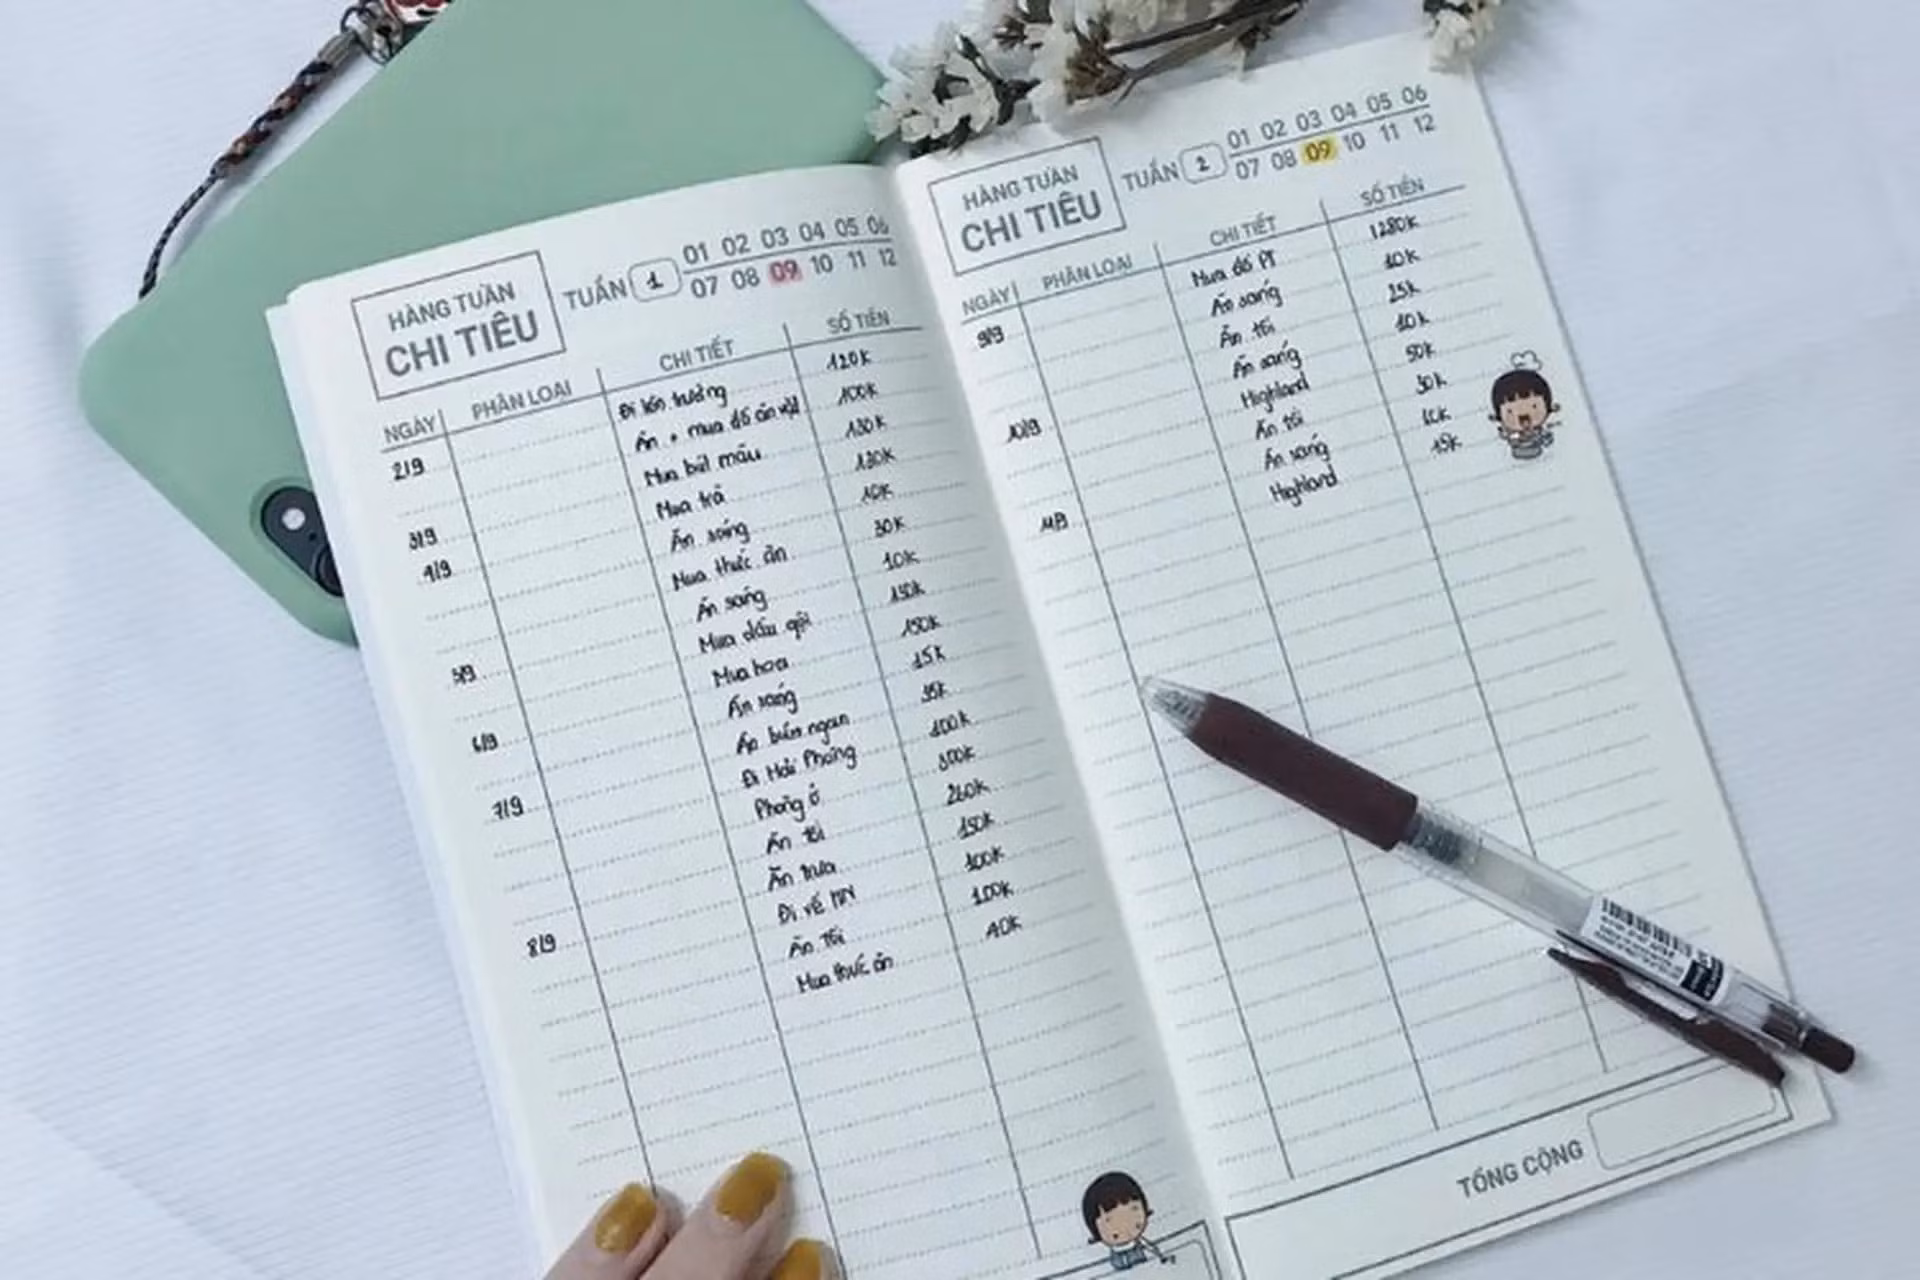 HÀNG TUẦN
CHI TIÊU
TUẦN 1
01 02 03 04 05 06
07 08 09 10 11 12
NGÀY PHÂN LOẠI CHI TIẾT SỐ TIỀN
2/9 Đi lên trường 120K
Ăn + mua đồ ăn vặt 100K
3/9 Mua bút màu 130K
4/9 Mua trà 130K
Ăn sáng 10K
Mua thức ăn 30K
5/9 Ăn sáng 10K
Mua dầu gội 150K
6/9 Mua hoa 150K
Ăn sáng 15K
7/9 Ăn bún ngan 35K
Đi Hải Phòng 100K
Phòng ở 300K
Ăn tối 260K
8/9 Ăn trưa 150K
Đi về HN 100K
Ăn tối 100K
Mua thức ăn 40K
HÀNG TUẦN
CHI TIÊU
TUẦN 2
01 02 03 04 05 06
07 08 09 10 11 12
NGÀY PHÂN LOẠI CHI TIẾT SỐ TIỀN
9/9 Mua đồ PT 1280K
Ăn sáng 10K
Ăn tối 25K
10/9 Ăn sáng 10K
Highland 50K
Ăn tối 30K
11/9 Ăn sáng 10K
Highland
TỔNG CỘNG